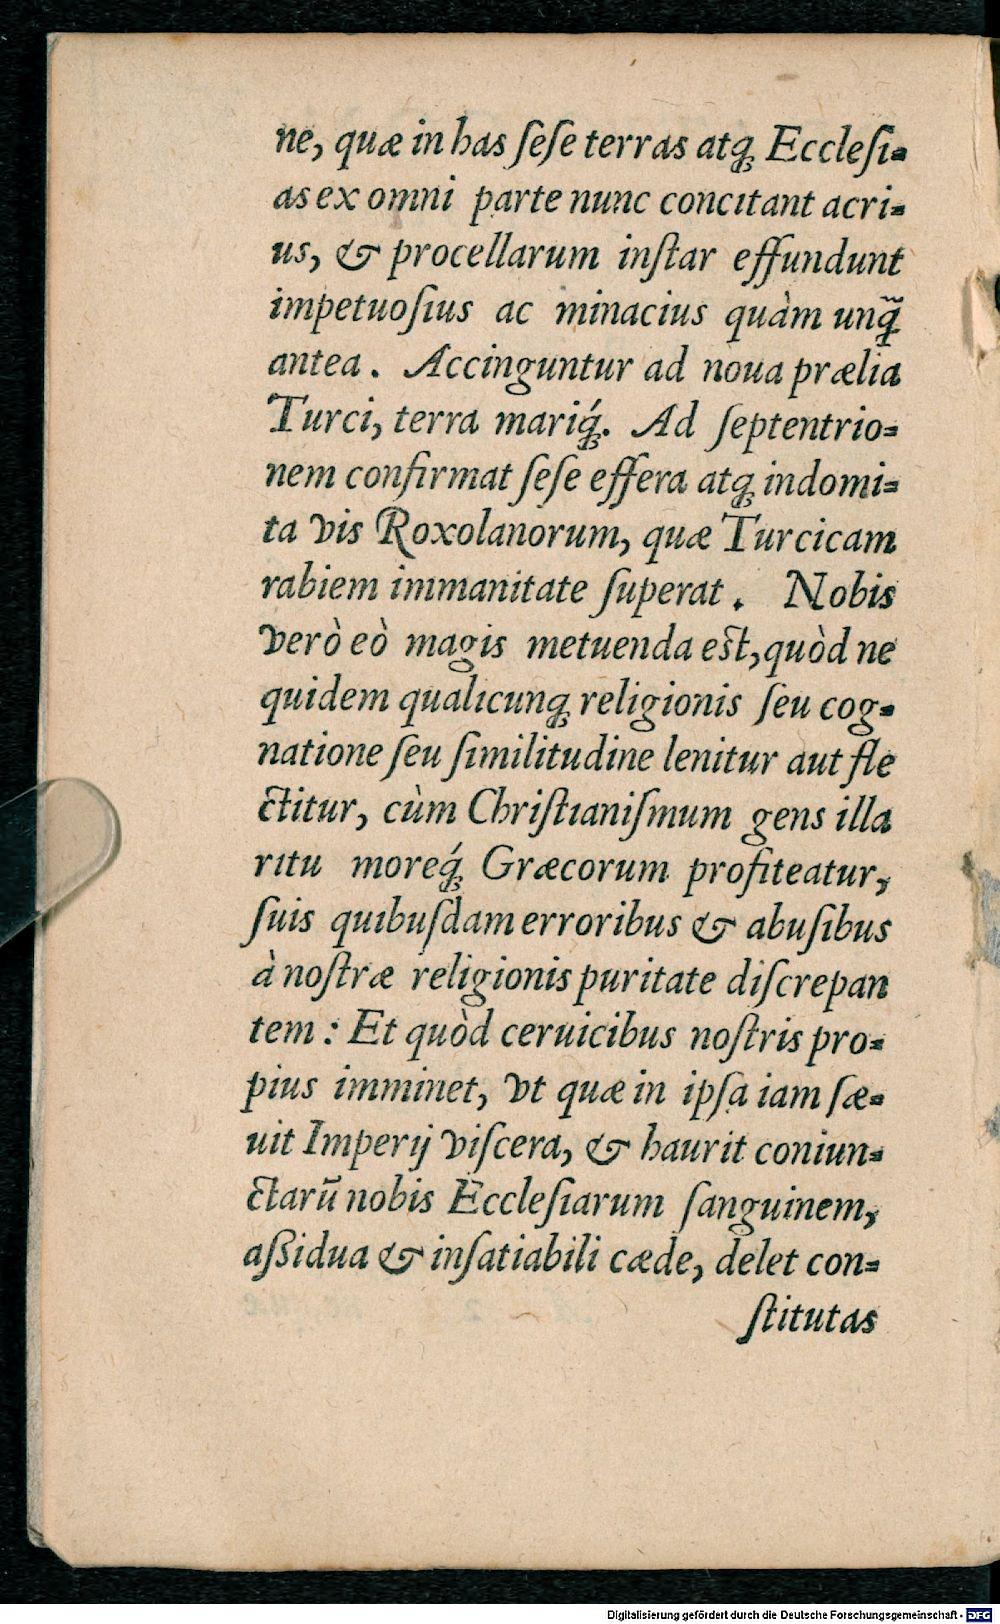 ne, quæ in has ſeſe terras atq́ꝫ Eccleſi⸗
as ex omni parte nunc concitant acri⸗
us, & procellarum inſtar effundunt
impetuoſius ac minacius quàm unq̃
antea. Accinguntur ad noua prælia
Turci, terra mariq́ꝫ. Ad ſeptentrio⸗
nem confirmat ſeſe effera atqꝫ indomi⸗
ta vis Roxolanorum, quæ Turcicam
rabiem immanitate ſuperat. Nobis
verò eò magis metuenda eſt, quòd ne
quidem qualicunqꝫ religionis ſeu cog⸗
natione ſeu ſimilitudine lenitur aut fle
ctitur, cùm Chriſtianiſmum gens illa
ritu moreq́ꝫ Græcorum profiteatur,
ſuis quibuſdam erroribus & abuſibus
à noſtræ religionis puritate diſcrepan
tem: Et quòd ceruicibus noſtris pro⸗
pius imminet, vt quæ in ipſa iam ſæ⸗
uit Imperij viſcera, & haurit coniun⸗
ctarũ nobis Eccleſiarum ſanguinem,
aſsidua & inſatiabili cæde, delet con⸗
ſtitutas
Digitalisierung gefördert durch die Deutsche Forschungsgemeinschaft - DFG